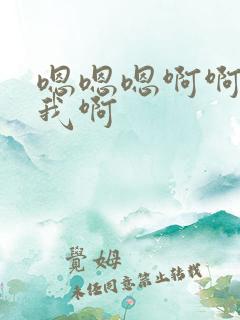 嗯嗯嗯啊啊
我啊
覺姆
未经同意禁止转载